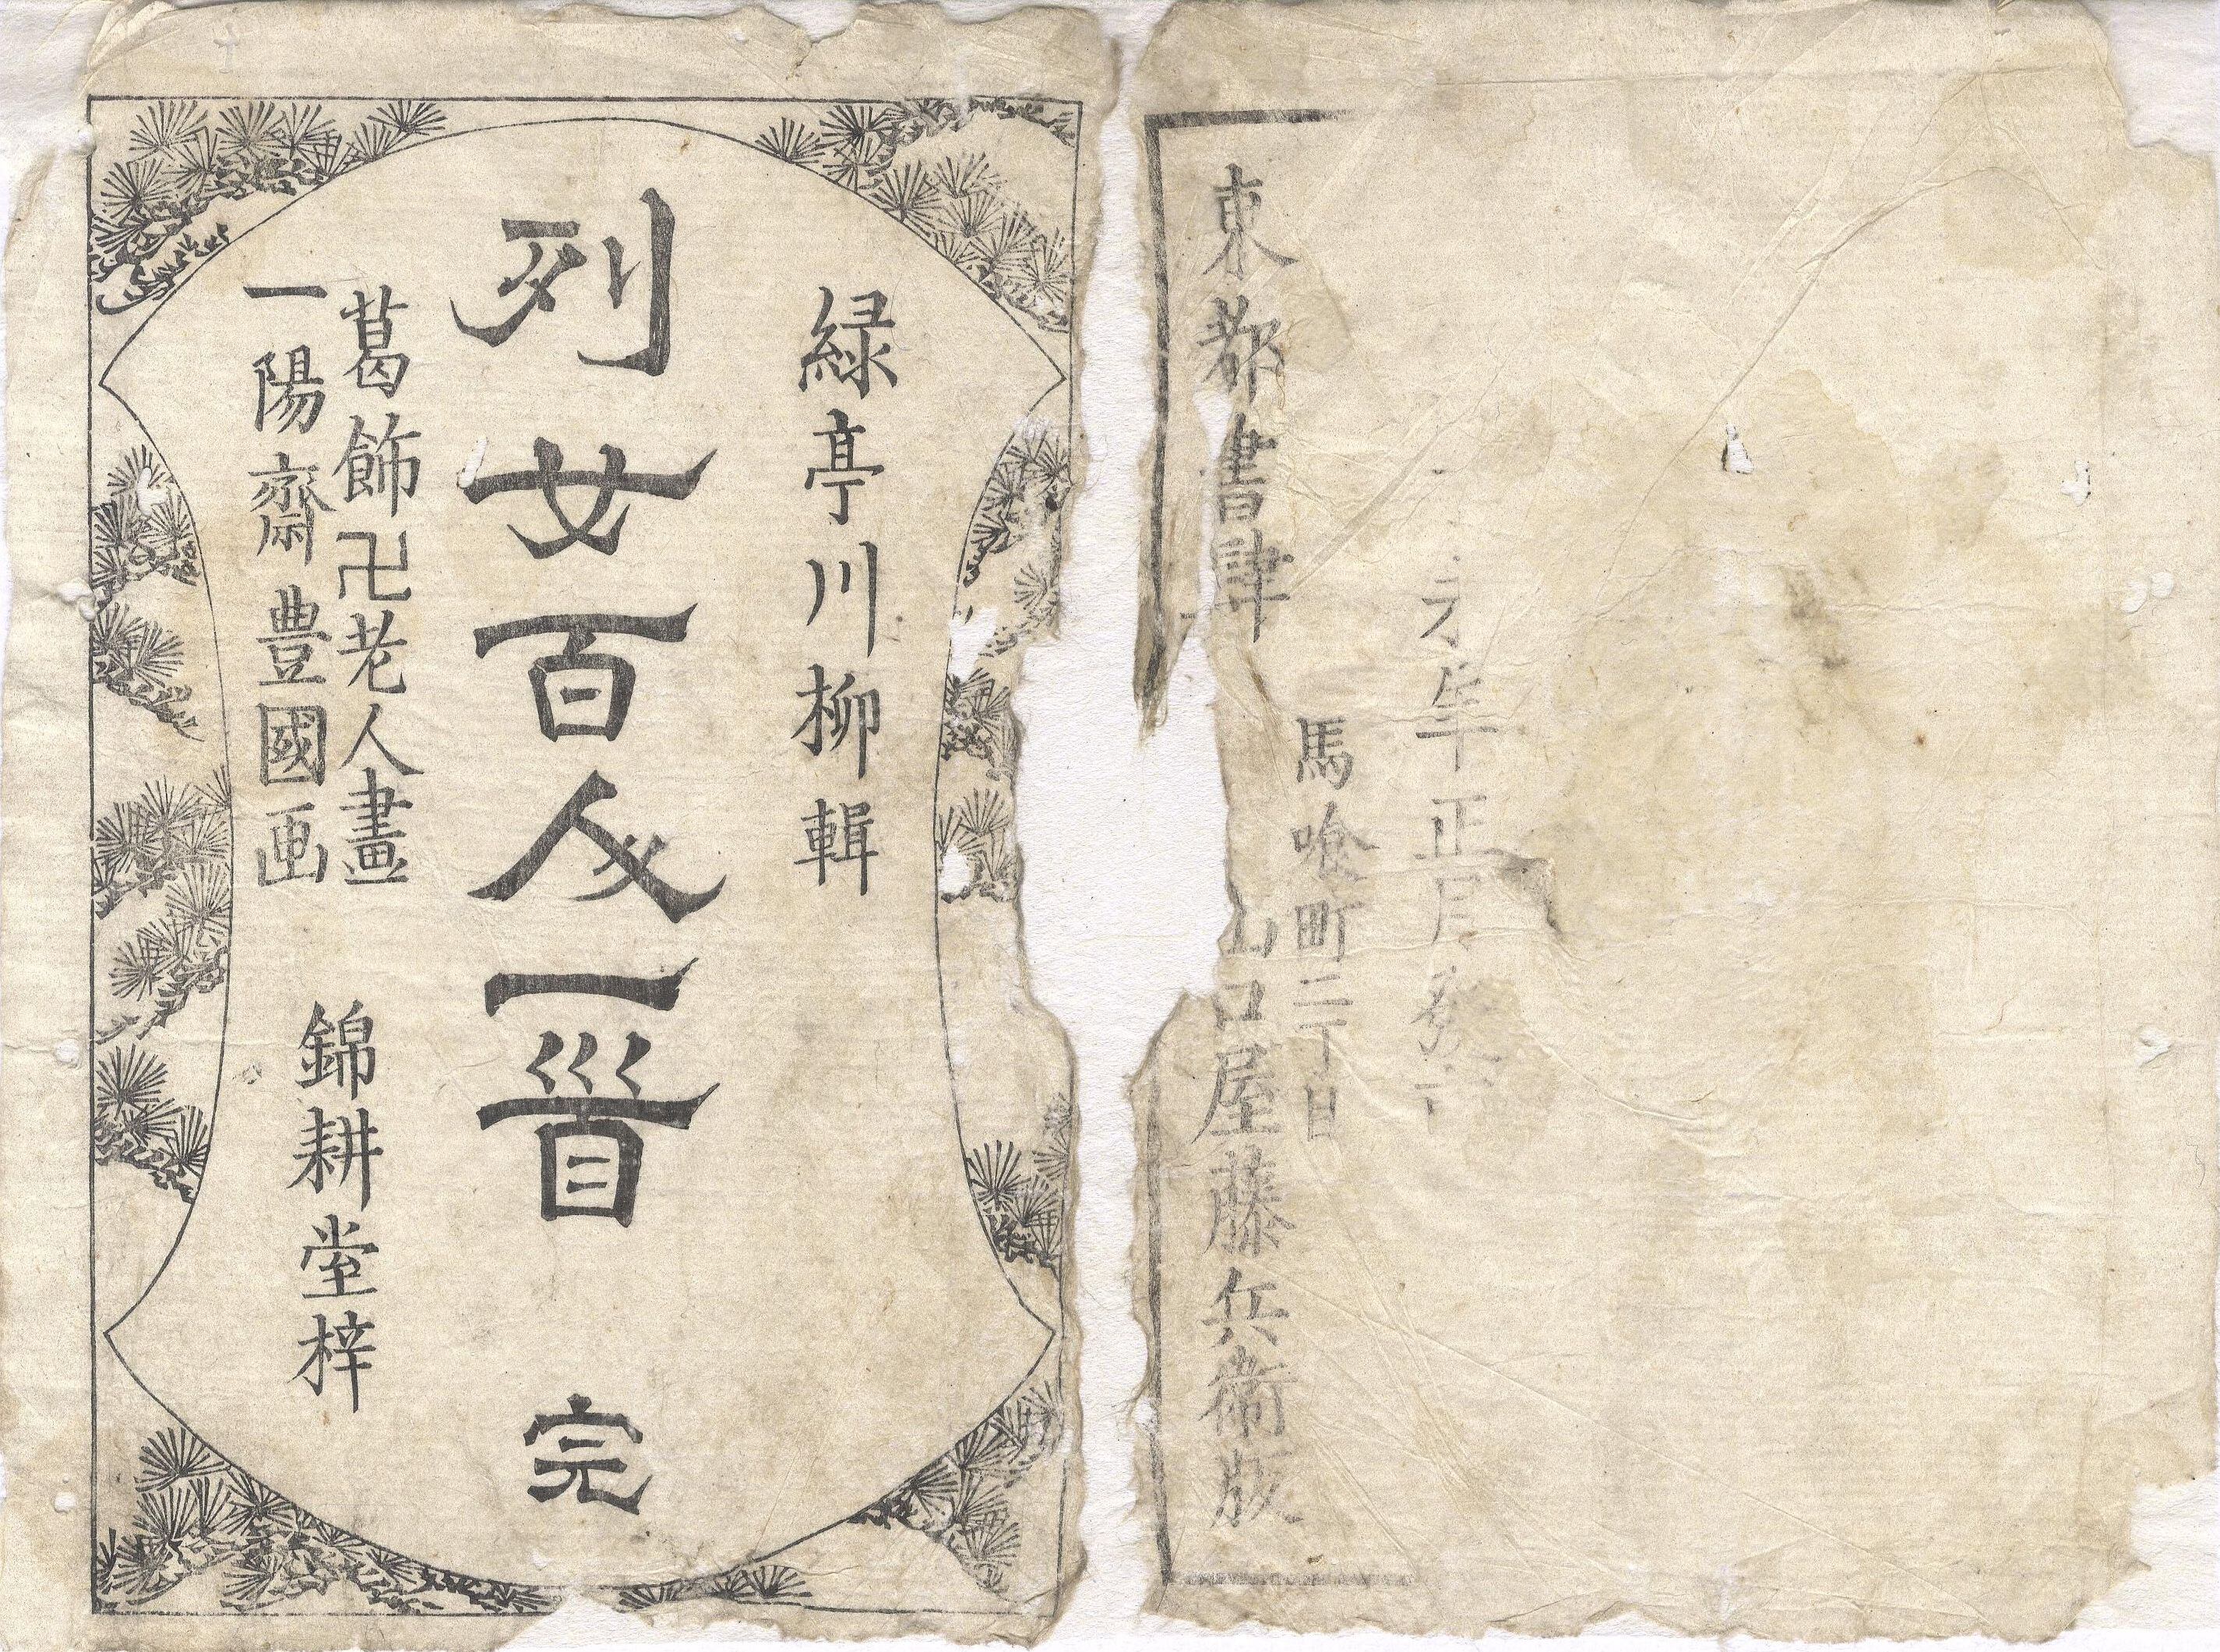 元年正月發
馬喰町二丁目
東都書肆
山口屋藤兵衛版
緑亭川柳輯
列女百人一首 完
葛飾卍老人畫
一陽齋豊國画
錦耕堂梓